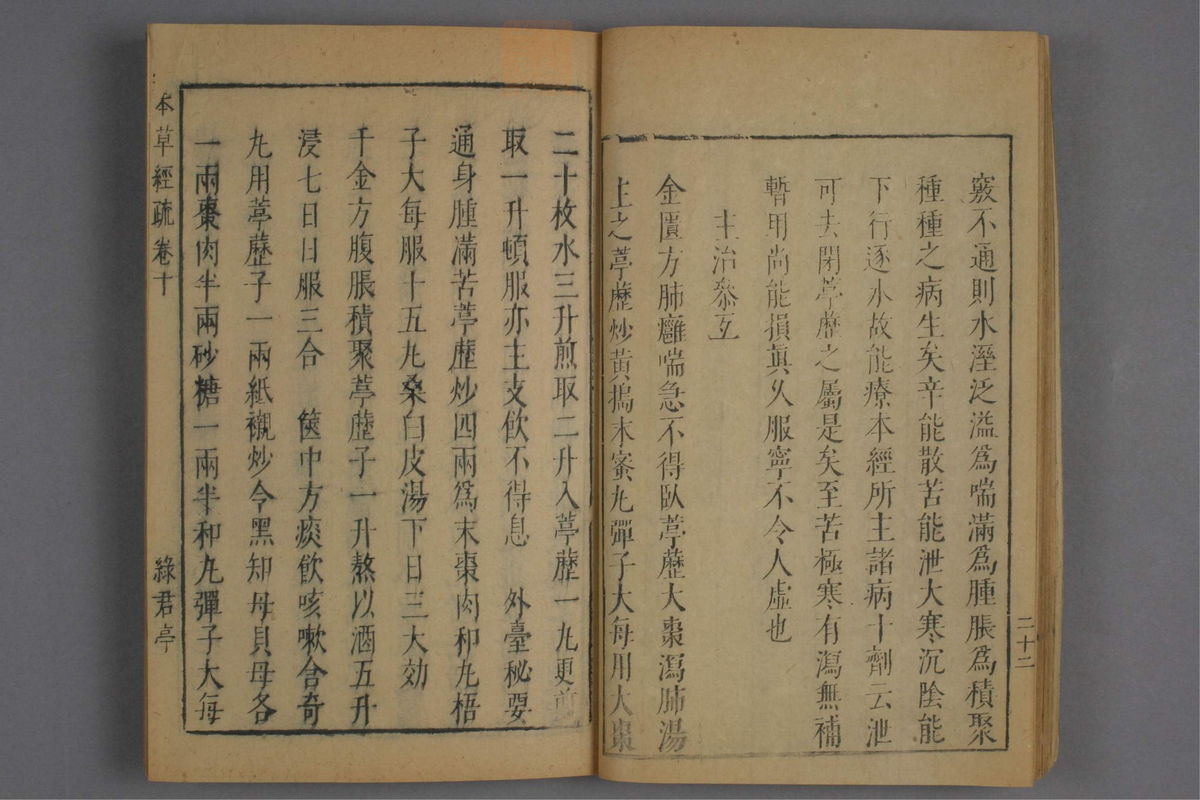 竅不通則水溼泛溢爲喘滿爲腫脹爲積聚
種種之病生矣辛能散苦能泄大寒沉陰能
下行逐水故能療本經所主諸病十劑云泄
可去閉葶藶之屬是矣至苦極寒有瀉無補
暫用尚能損眞久服寧不令人虛也
主治叅互
金匱方肺癰喘急不得臥葶藶大棗瀉肺湯
主之葶藶炒黃搗末蜜丸彈子大每用大棗
二十二
二十枚水三升煎取二升入葶藶一丸更煎
取一升頓服亦主支飲不得息 外臺秘要
通身腫滿苦葶藶炒四兩爲末棗肉和丸梧
子大每服十五丸桑白皮湯下日三大効
千金方腹脹積聚葶藶子一升熬以酒五升
浸七日日服三合 篋中方痰飲咳嗽含奇
丸用葶藶子一兩紙襯炒令黑知母貝母各
一兩棗肉半兩砂糖一兩半和丸彈子大每
本草經疏 卷十 綠君亭